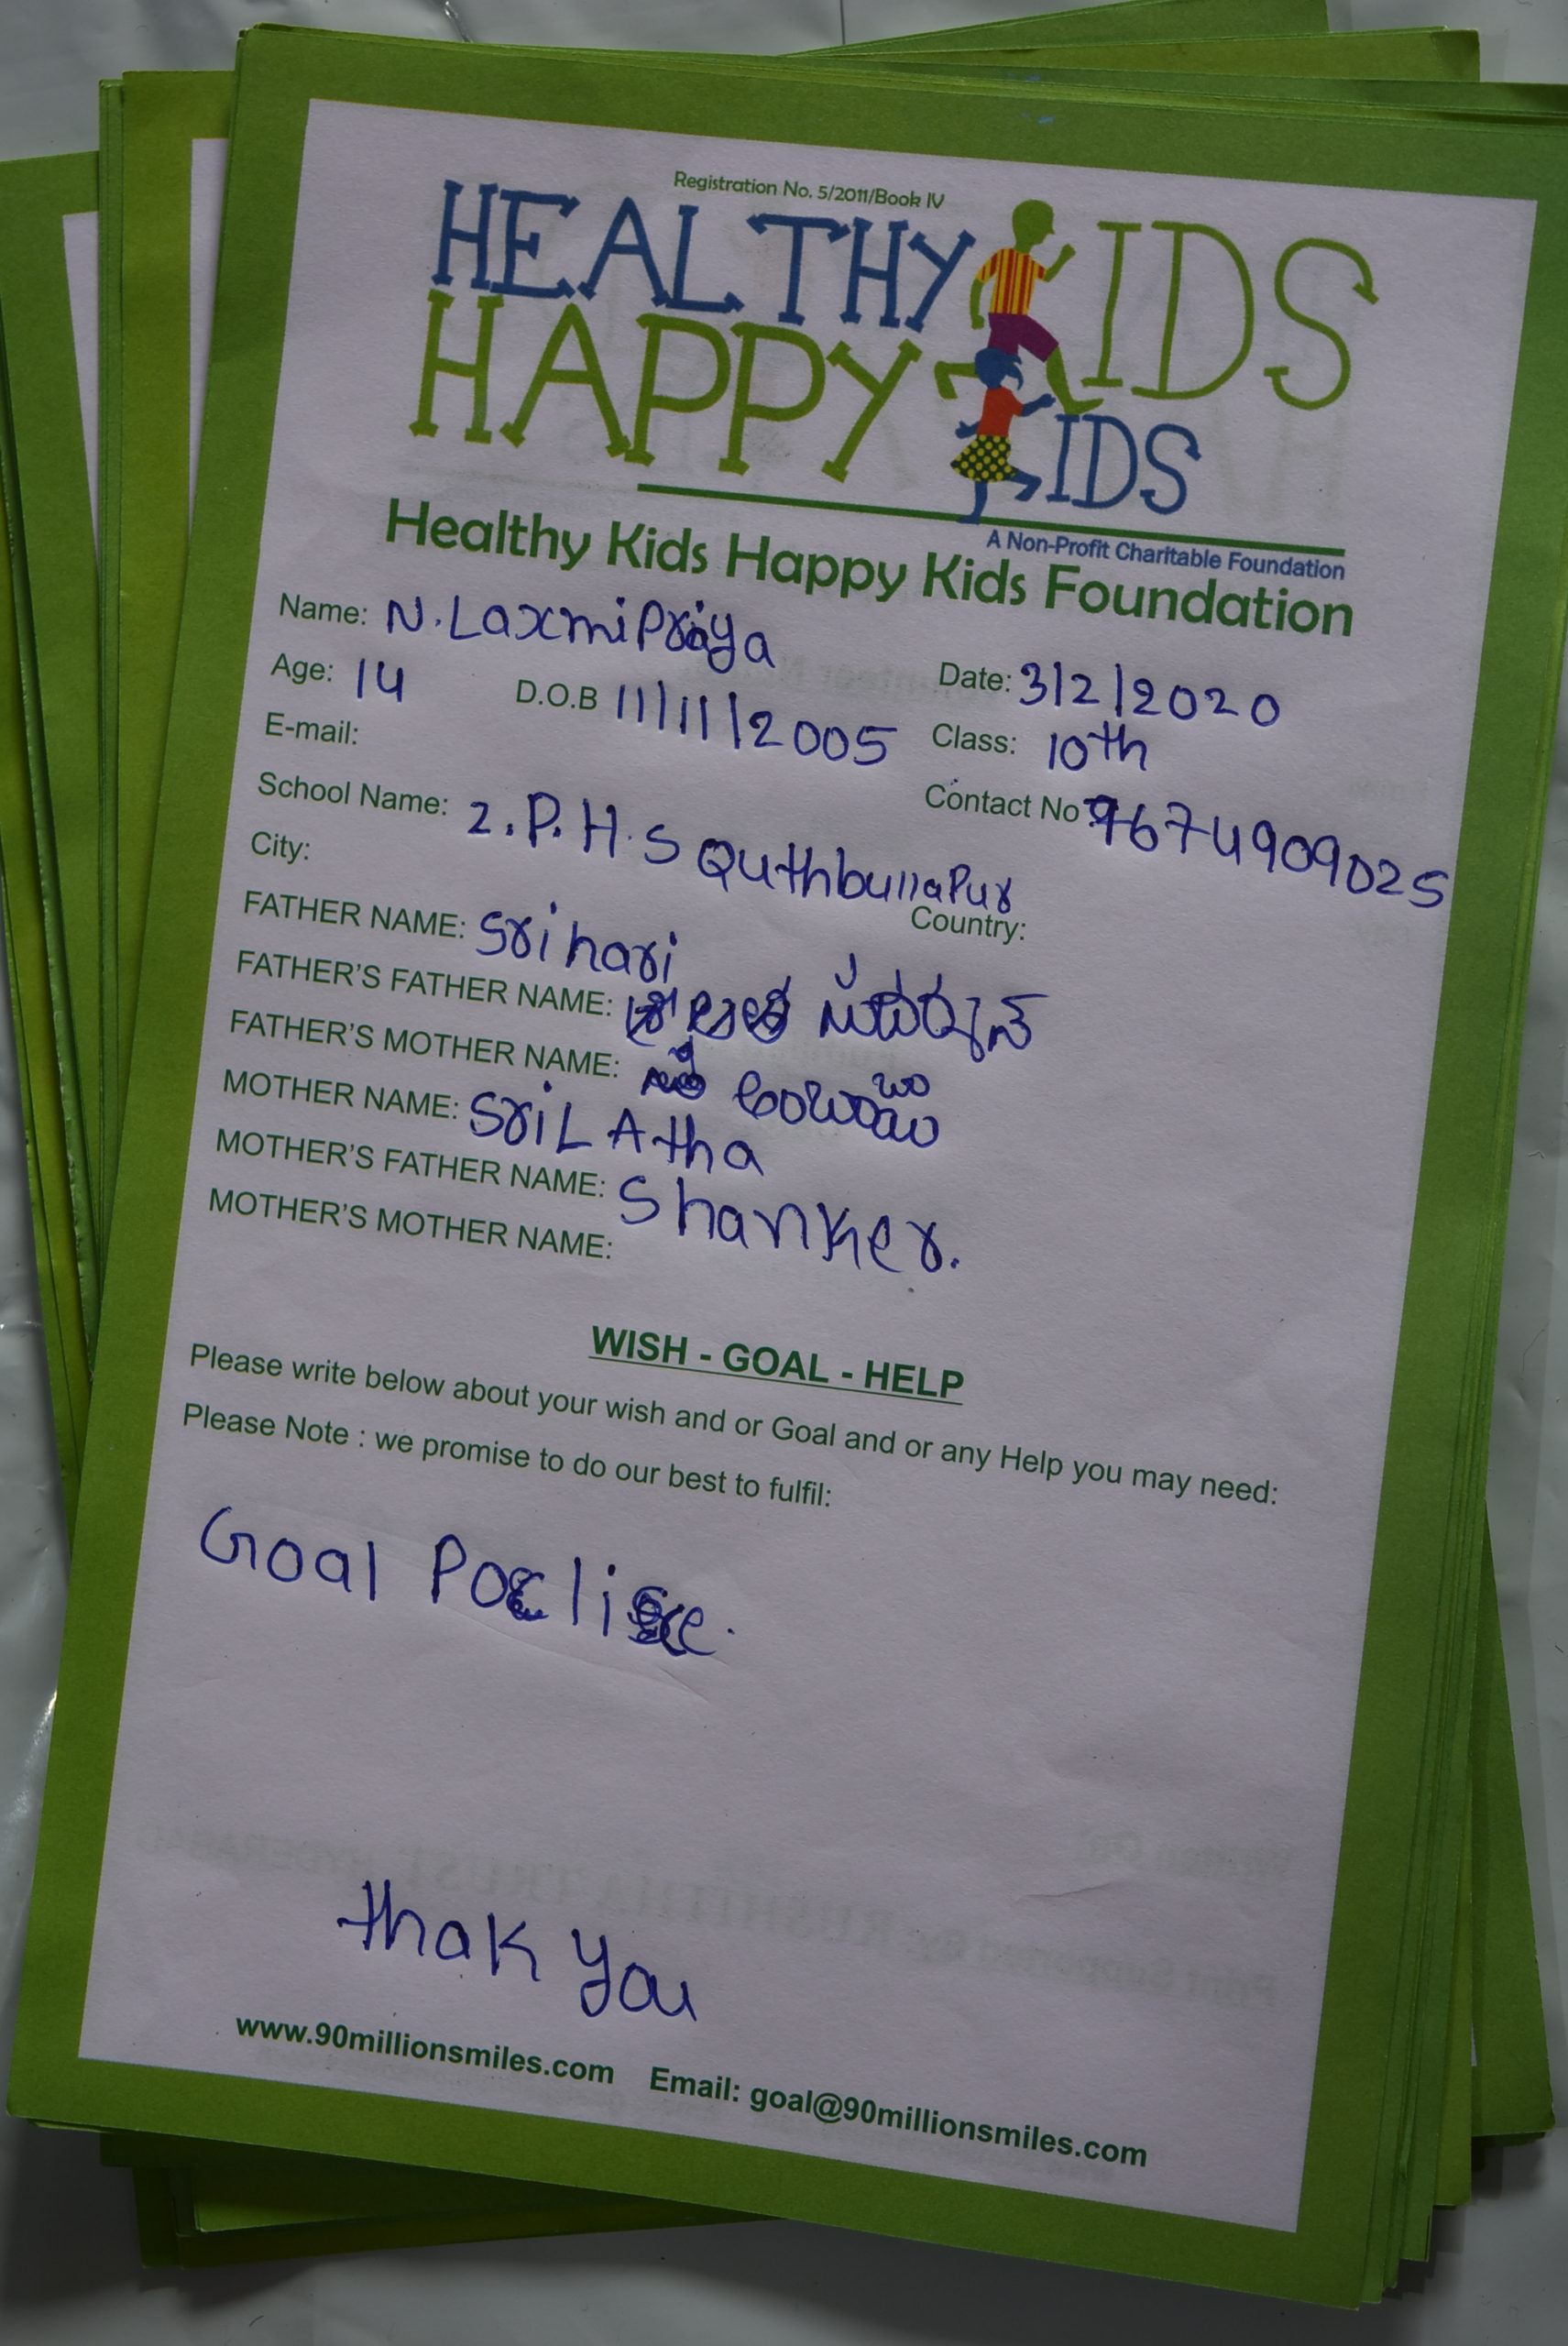 Registration No. 5/2011/Book IV
HEALTHY KIDS
HAPPY KIDS
A Non-Profit Charitable Foundation
Healthy Kids Happy Kids Foundation
Name: N. LaxmiPriya
Date: 3/2/2020
Age: 14 D.O.B 11/11/2005 Class: 10th
E-mail: Contact No 9674909025
School Name: Z.P.H.S QuthbullaPur
City: Country:
FATHER NAME: Srihari
FATHER'S FATHER NAME:
FATHER'S MOTHER NAME:
MOTHER NAME: SriLAtha
MOTHER'S FATHER NAME: Shanker.
MOTHER'S MOTHER NAME:
WISH - GOAL - HELP
Please write below about your wish and or Goal and or any Help you may need:
Please Note : we promise to do our best to fulfil:
Goal
thak you
www.90millionsmiles.com Email: goal@90millionsmiles.com